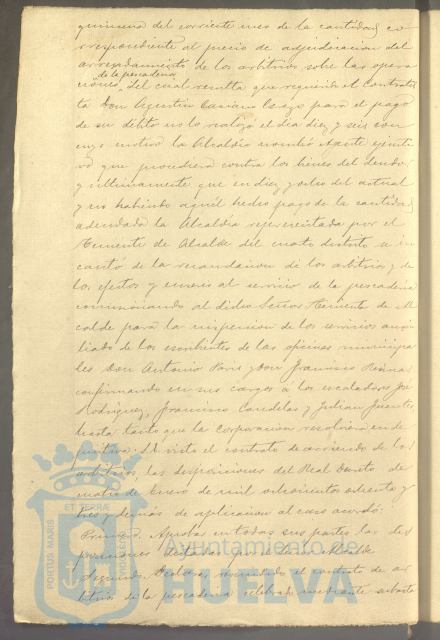 quincena del corriente mes de la cantidad co-
rrespondiente al precio de adjudicacion del
arrendamiento de los arbitrios sobre las opera
ciones de la pescaderia, del cual resulta que requerido el contratis
ta Don Agustin para el pago
de su débito no lo realizó el dia diez y seis con
cuyo motivo la Alcaldia nombró Agente ejecuti
vo que procediera contra los bienes del deudor
y ultimamente que en diez y ocho del actual
y no habiendo aquel hecho pago de la cantidad
adeudada la Alcaldia representada por el
Teniente de Alcalde del cuarto distrito se in
cautó de la recaudacion de los arbitrios y de
los efectos y enseres al servicio de la pescaderia
comisionando al dicho Señor Teniente de Al
calde para la inspeccion de los servicios auxi
liado de los escribientes de las oficinas municipa
les Don Antonio y Don Francisco
confirmando en sus cargos á los José
Rodriguez, Francisco Candelas y Julian Fuentes
hasta tanto que la Corporacion resolviera en de
finitiva. Y visto el contrato de arriendo de los
arbitrios, las disposiciones del Real Decreto de
cuatro de Enero de mil ochocientos ochenta y
tres y demás de aplicacion al caso acordó:
Primero. Aprobar en todas sus partes las dis
posiciones adoptadas por el Alcalde
Segundo. Declarar rescindido el contrato de ar
bitrios de la pescaderia celebrado mediante subasta
PORTUS MARIS
ET TERRÆ
CUSTODIA
Ayuntamiento de
HUELVA